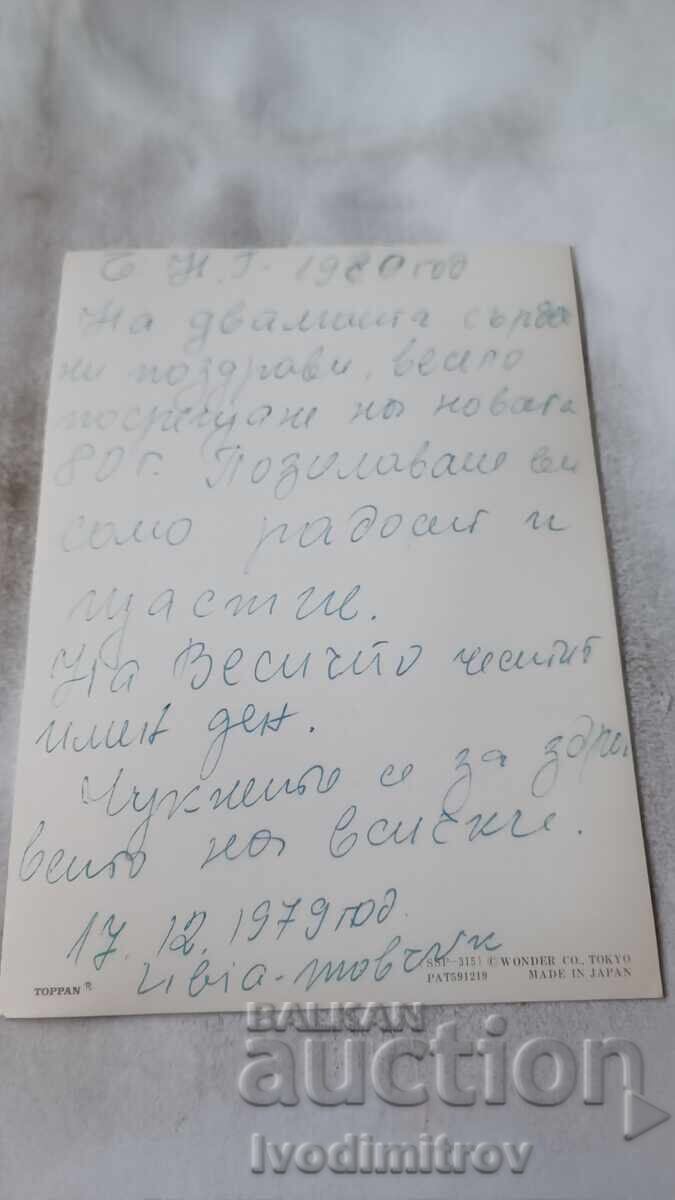 Ч Н.Г. 1980 год
На двамата сърде
чни поздрави, весело
посрещане на новата
80 г. Позелаваме ви
само радост и
щастие.
На Весичто честит
имен ден.
Чукнете се за здра
вето на всички.
17.12.1979 год.
SSP-3151 © WONDER CO., TOKYO
PAT591219 MADE IN JAPAN
TOPPAN ®
BALKAN
auction
Ivodimitrov